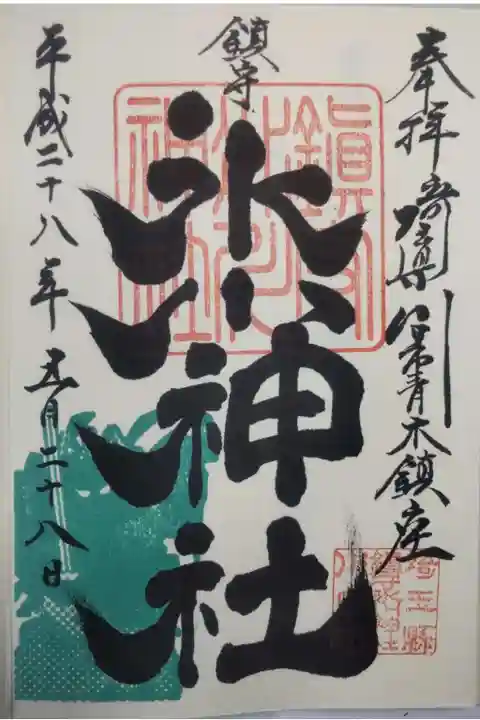 奉拝 埼玉県川口市青木鎮座
鎮守
氷川神社
平成二十八年五月二十八日
鎮守氷川神社